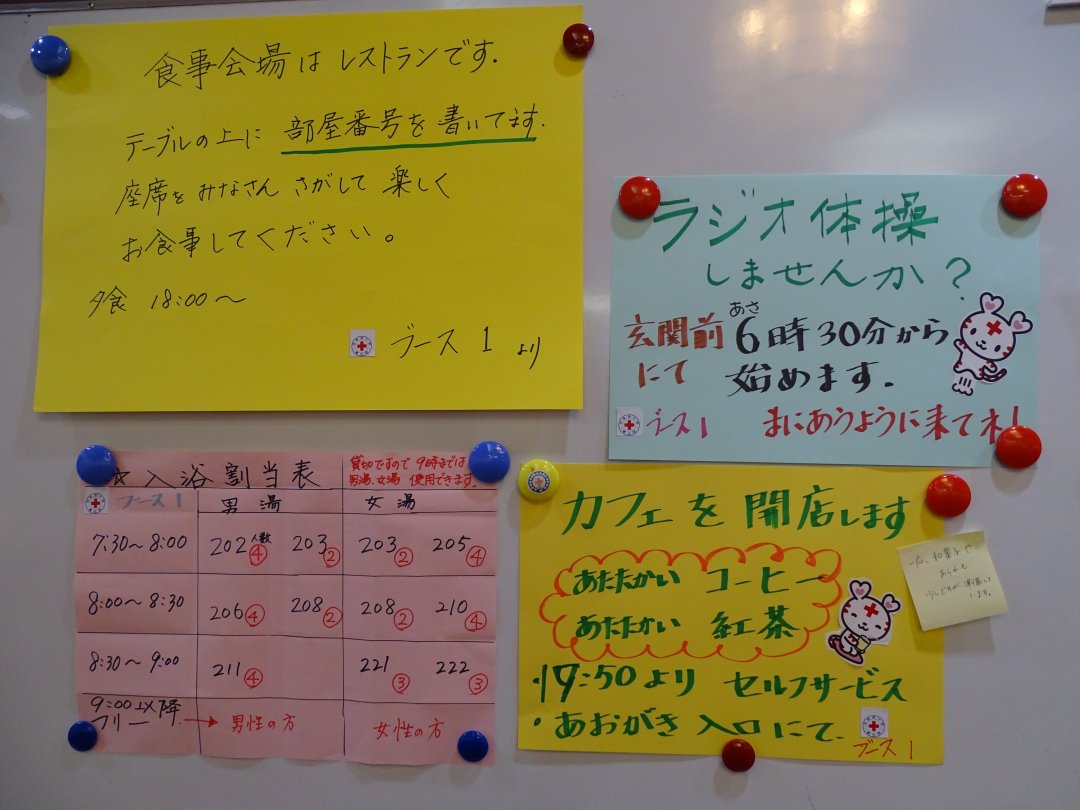 食事会場は レストランです.
テーブルの上に 部屋番号を 書いてます.
座席を みなさん さがして 楽しく
お食事してください。
夕食 18:00～
ブース 1 より
ラジオ体操
しませんか?
あさ
玄関前 6時30分から
にて 始めます.
ブース1 まにあうように来てネ!
☆入浴割当表
貸切ですので 9時までは
男湯、女湯 使用できます.
ブース1 男湯 女湯
7:30～8:00 202 人数④ 203② 203② 205④
8:00～8:30 206④ 208② 208② 210④
8:30～9:00 211④ 221③ 222③
9:00以降
フリー → 男性の方 女性の方
カフェを開店します
あたたかい コーヒー
あたたかい 紅茶
・19:50より セルフサービス
・あおがき 入口にて.
ブース1
和菓子や
あられも
少しですが 準備して
います。